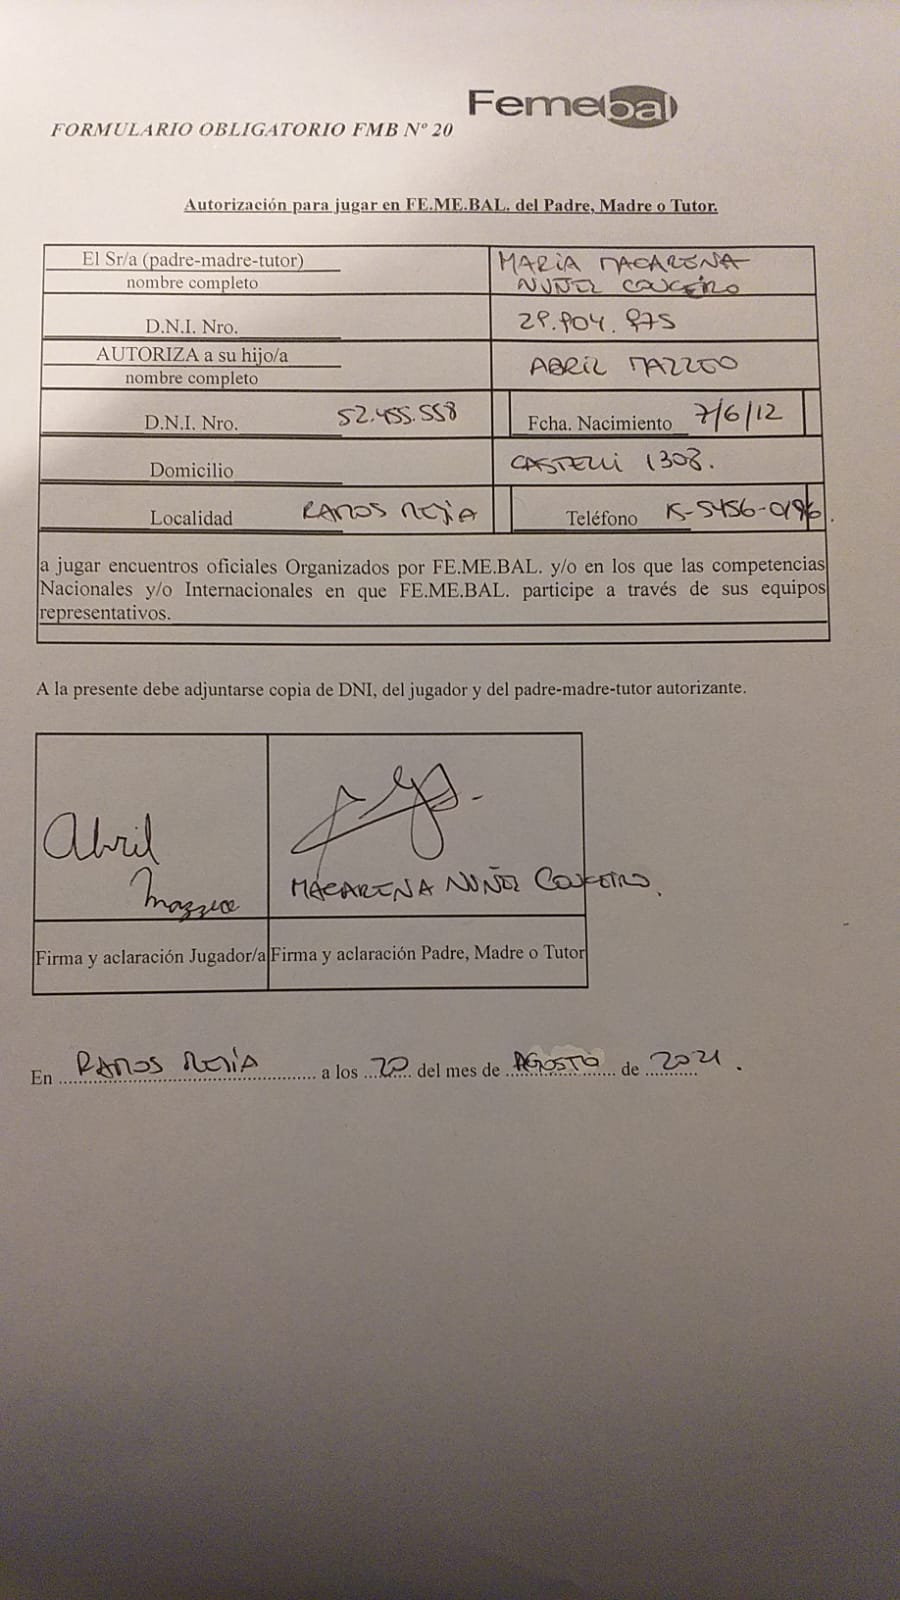 Femebal
FORMULARIO OBLIGATORIO FMB Nº 20
Autorización para jugar en FE.ME.BAL. del Padre, Madre o Tutor.
El Sr/a (padre-madre-tutor)
nombre completo
MARIA MACARENA
NUÑEZ COUCEIRO
D.N.I. Nro. 29.904.975
AUTORIZA a su hijo/a
nombre completo
ABRIL MAZZEO
D.N.I. Nro. 52.455.558 Fcha. Nacimiento 7/6/12
Domicilio CASTELLI 1308.
Localidad RAMOS MEJIA Teléfono 15-5456-0196
a jugar encuentros oficiales Organizados por FE.ME.BAL. y/o en los que las competencias
Nacionales y/o Internacionales en que FE.ME.BAL. participe a través de sus equipos
representativos.
A la presente debe adjuntarse copia de DNI, del jugador y del padre-madre-tutor autorizante.
Abril
Mazzeo
MACARENA NUÑEZ COUCEIRO.
Firma y aclaración Jugador/a Firma y aclaración Padre, Madre o Tutor
En RAMOS MEJIA a los 20 del mes de AGOSTO de 2021.